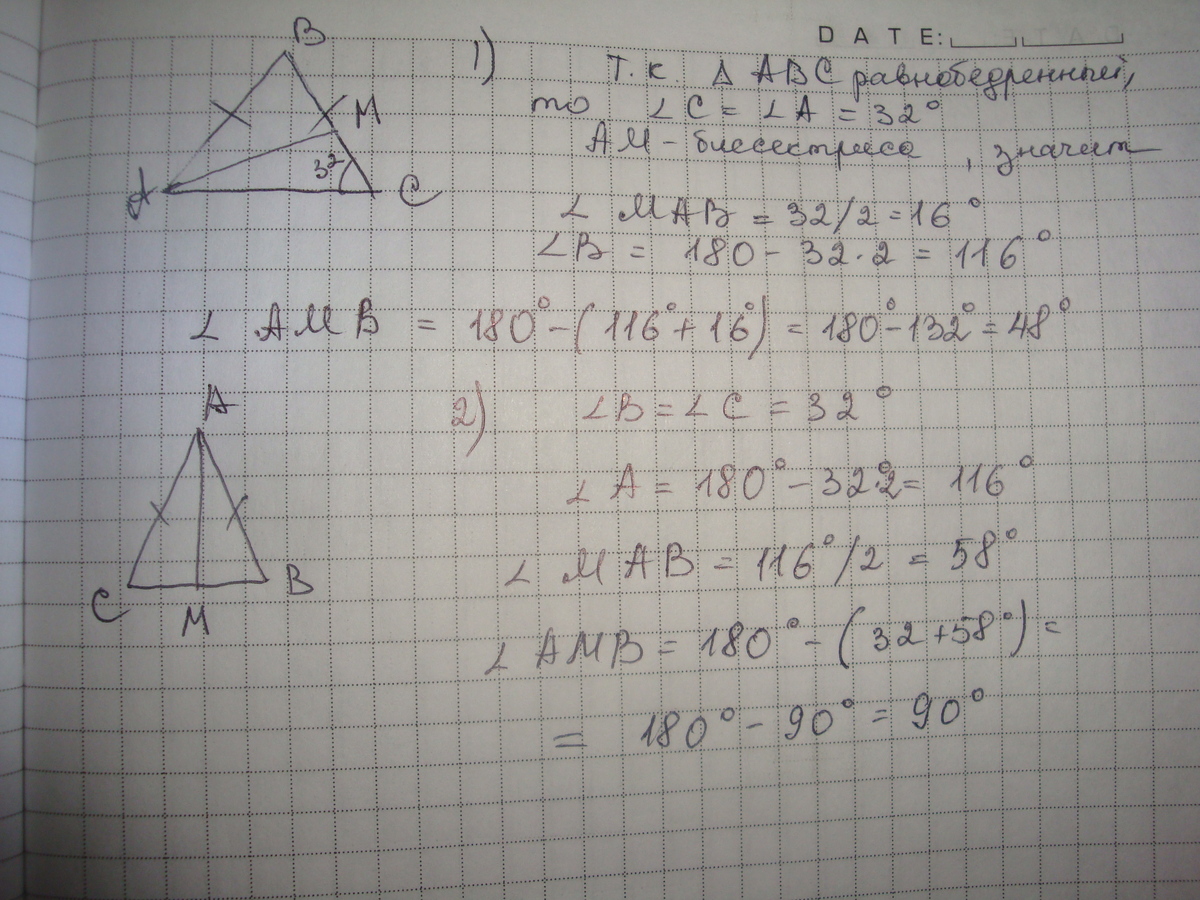 DATE:
B
M
32
A
C
1) Т.к. Δ ABC равнобедренный,
то ∠C = ∠A = 32°
AM - биссектриса, значит
∠ MAB = 32/2 = 16°
∠B = 180 - 32·2 = 116°
∠ AMB = 180° - (116° + 16°) = 180° - 132° = 48°
A
C
M
B
2) ∠B = ∠C = 32°
∠A = 180° - 32°·2 = 116°
∠ MAB = 116°/2 = 58°
∠ AMB = 180° - (32 + 58°) =
= 180° - 90° = 90°